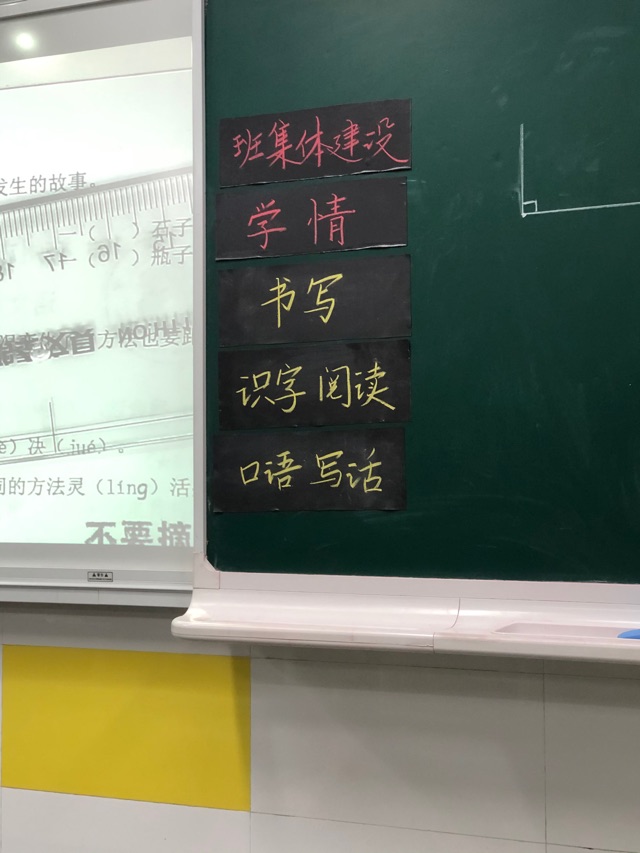 发生的故事。
一（ ）石子
15 16 17 18
（ ）瓶子
方法也要跟
）决（jué）。
同的方法灵（lìng）活
不要摘
班集体建设
学情
书写
识字 阅读
口语 写话